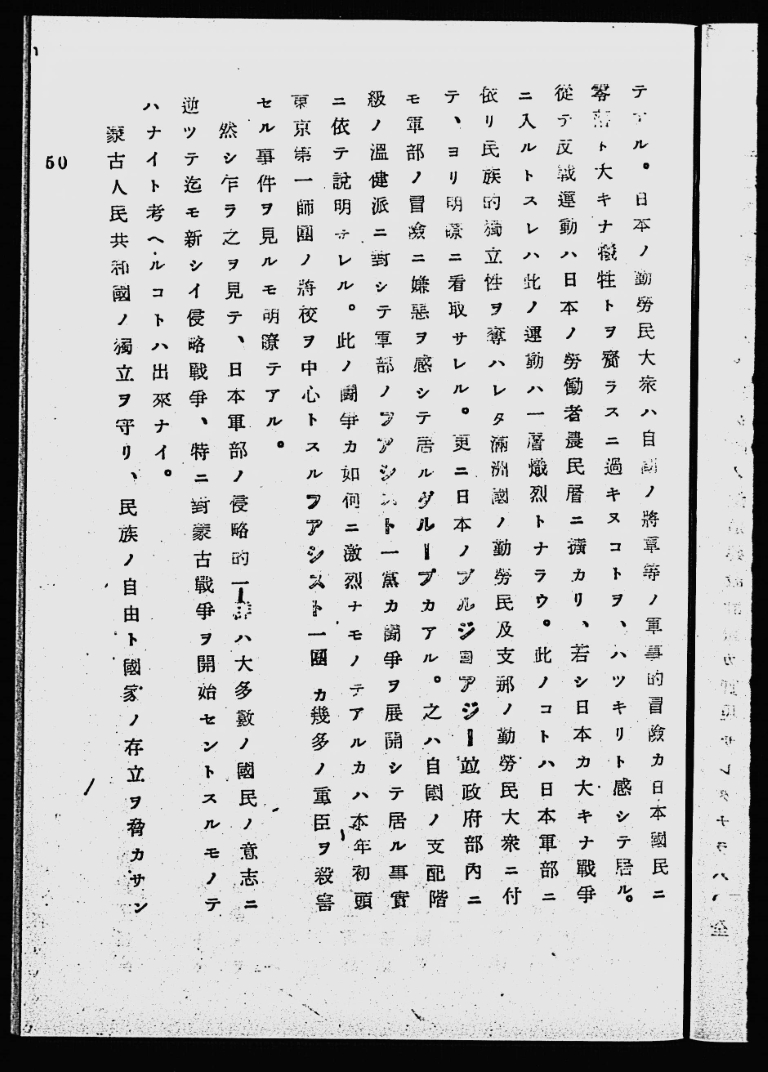 テアル。日本ノ勤勞民大衆ハ自國ノ將軍等ノ軍事的冒險カ日本國民ニ
零落ト大キナ犧牲トヲ齎ラスニ過キヌコトヲ、ハツキリト感シテ居ル。
從テ反戰運動ハ日本ノ勞働者農民層ニ擴カリ、若シ日本カ大キナ戰爭
ニ入ルトスレハ此ノ運動ハ一層熾烈トナラウ。此ノコトハ日本軍部ニ
依リ民族的獨立性ヲ奪ハレタ滿洲國ノ勤勞民及支那ノ勤勞民大衆ニ付
テ、ヨリ明瞭ニ看取サレル。更ニ日本ノブルジヨアジー竝政府部內ニ
モ軍部ノ冒險ニ嫌惡ヲ感シテ居ルグループカアル。之ハ自國ノ支配階
級ノ溫健派ニ對シテ軍部ノフアシスト一黨カ鬪爭ヲ展開シテ居ル事實
ニ依テ說明サレル。此ノ鬪爭カ如何ニ激烈ナモノテアルカハ本年初頭
東京第一師團ノ將校ヲ中心トスルフアシスト一團カ幾多ノ重臣ヲ殺害
セル事件ヲ見ルモ明瞭テアル。
然シ乍ラ之ヲ見テ、日本軍部ノ侵略的一群ハ大多數ノ國民ノ意志ニ
逆ツテ迄モ新シイ侵略戰爭、特ニ對蒙古戰爭ヲ開始セントスルモノテ
ハナイト考ヘルコトハ出來ナイ。
蒙古人民共和國ノ獨立ヲ守リ、民族ノ自由ト國家ノ存立ヲ脅カサン
50